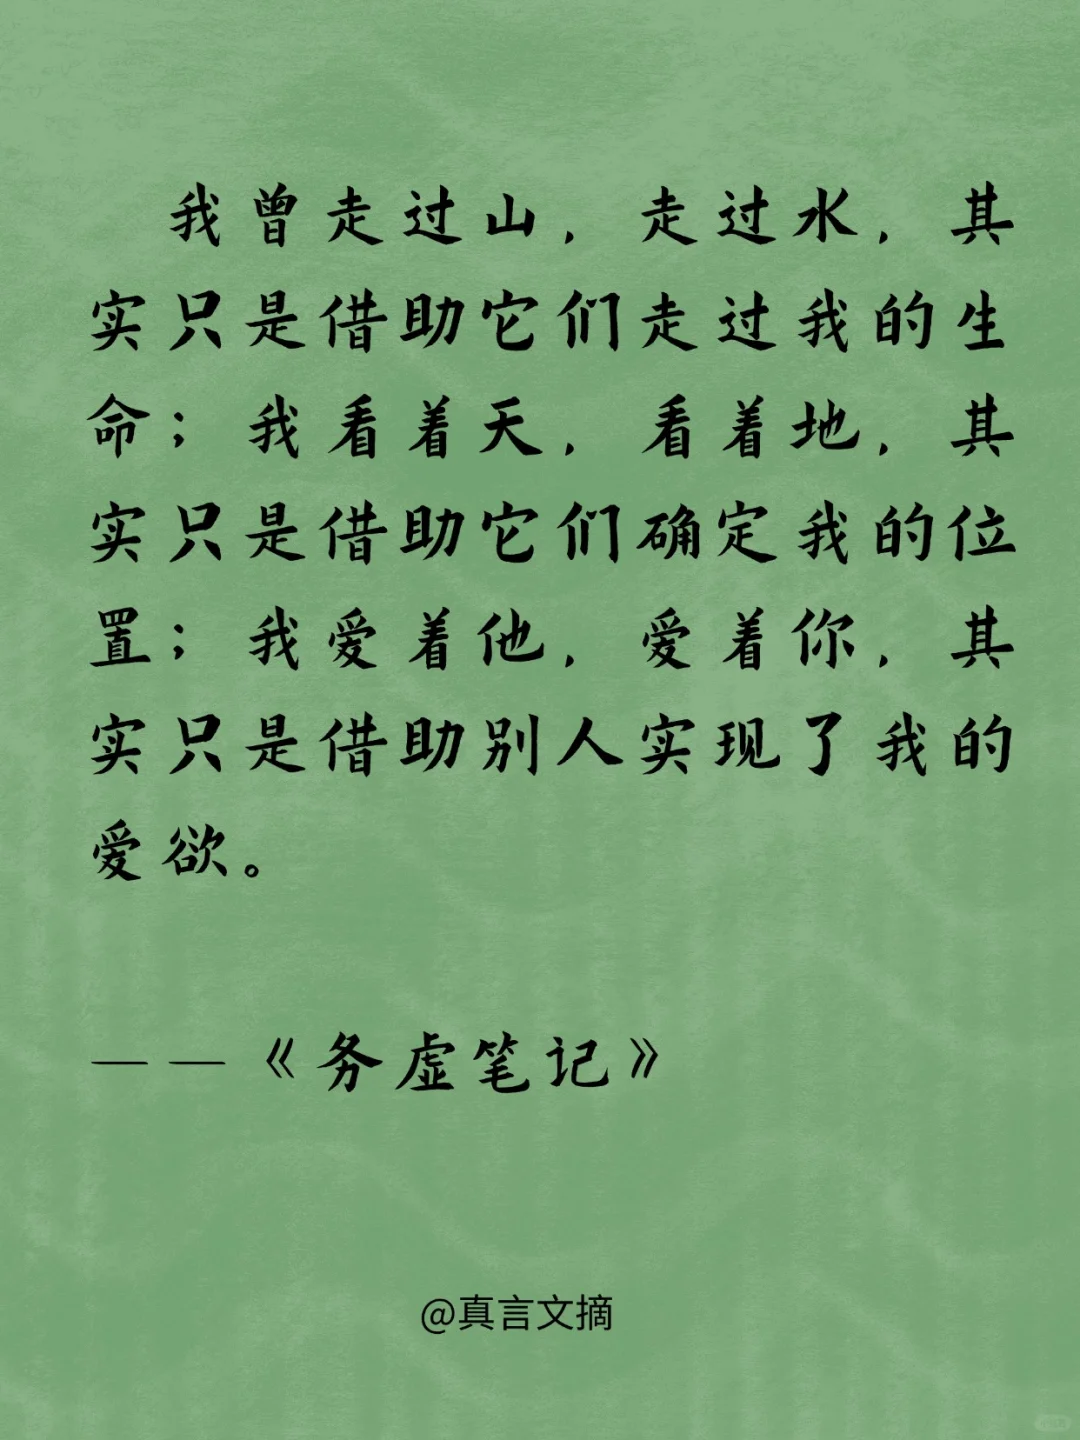 我曾走过山，走过水，其
实只是借助它们走过我的生
命；我看着天，看着地，其
实只是借助它们确定我的位
置；我爱着他，爱着你，其
实只是借助别人实现了我的
爱欲。
——《务虚笔记》
@真言文摘